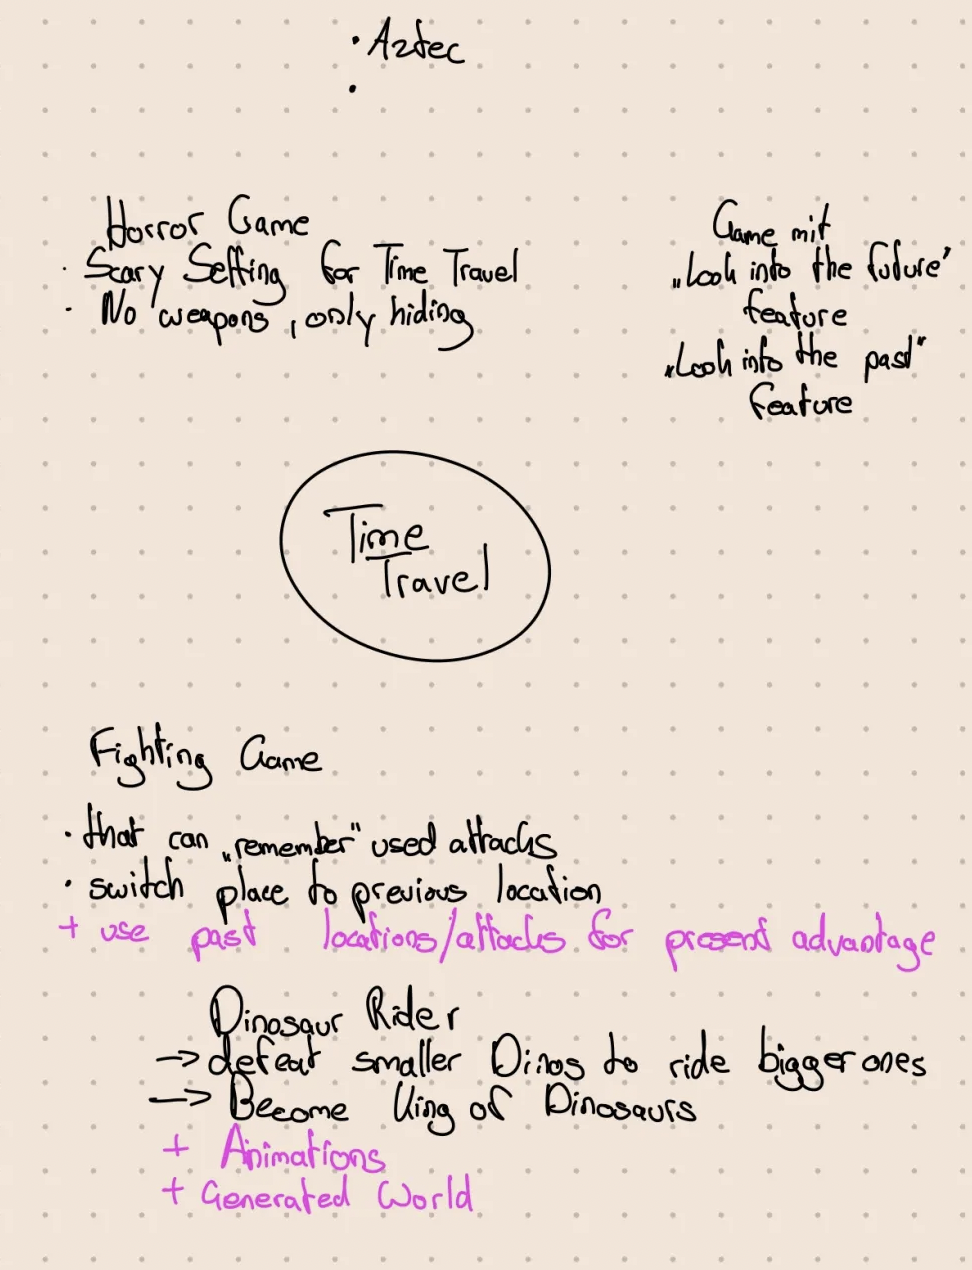 · Aztec
·
Horror Game
· Scary Setting for Time Travel
· No weapons, only hiding
Game mit
„Look into the future"
feature
„Look into the past"
feature
Time
Travel
Fighting Game
· that can „remember" used attacks
· switch place to previous location
+ use past locations/attacks for present advantage
Dinosaur Rider
→ defeat smaller Dinos to ride bigger ones
→ Become King of Dinosaurs
+ Animations
+ Generated World